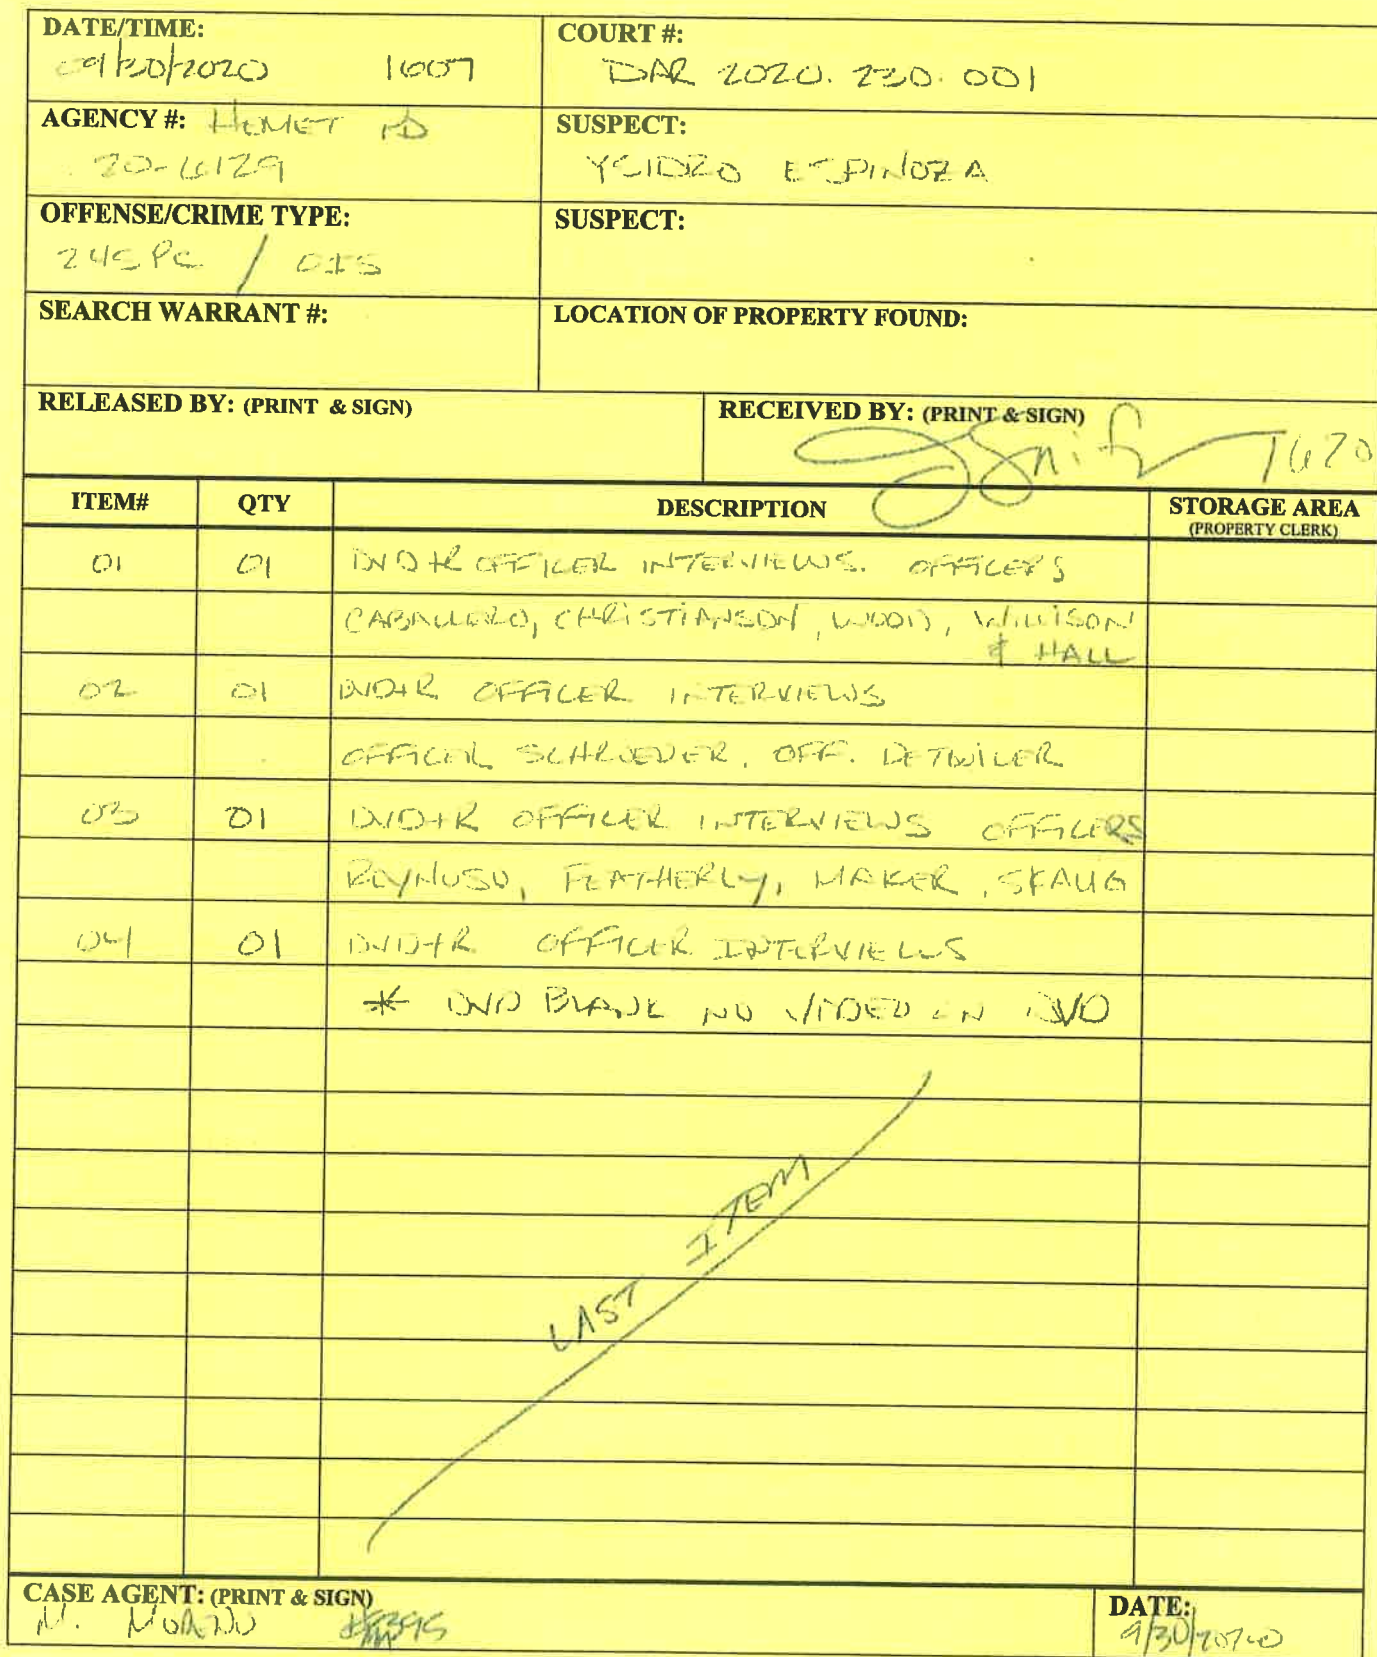 DATE/TIME: COURT #:
09/30/2020 1607 DAR 2020. 230. 001
AGENCY #: HEMET PD SUSPECT:
20-6129 YSIDRO ESPINOZA
OFFENSE/CRIME TYPE: SUSPECT:
245 PC / OIS
SEARCH WARRANT #: LOCATION OF PROPERTY FOUND:
RELEASED BY: (PRINT & SIGN) RECEIVED BY: (PRINT & SIGN)
ITEM# QTY DESCRIPTION STORAGE AREA
(PROPERTY CLERK)
01 01 DVD+R OFFICER INTERVIEWS. OFFICERS
CABALLERO, CHRISTIANSON, WOOD, WILLISON
& HALL
02 01 DVD+R OFFICER INTERVIEWS
OFFICER SCHROEDER, OFF. DETWILER
03 01 DVD+R OFFICER INTERVIEWS OFFICERS
REYNOSO, FEATHERLY, MAKER, SKAUG
04 01 DVD+R OFFICER INTERVIEWS
* DVD BLANK NO VIDEO ON DVD
LAST ITEM
CASE AGENT: (PRINT & SIGN) DATE:
N. MORENO 9/30/2020